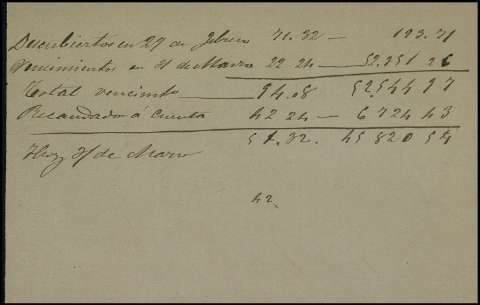 Descubiertos en 29 de Febrero 71.32 — 193.71
Vencimientos en 31 de Marzo 22.24 — 52,351 26
Total vencimto 94.08 52544 97
Recaudado á cuenta 42 24 — 6724 43
Hoy 31 de Marzo 51.32. 45820 54
42